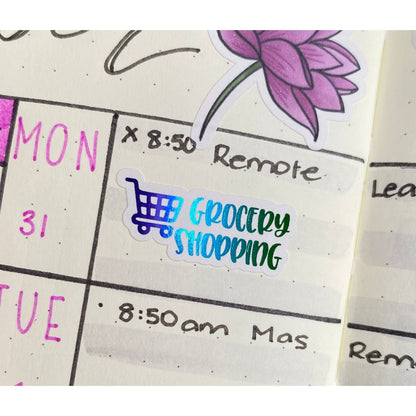 MON
31
x 8:50 Remote
GROCERY
SHOPPING
Lea
TUE
• 8:50am Mas
Rem